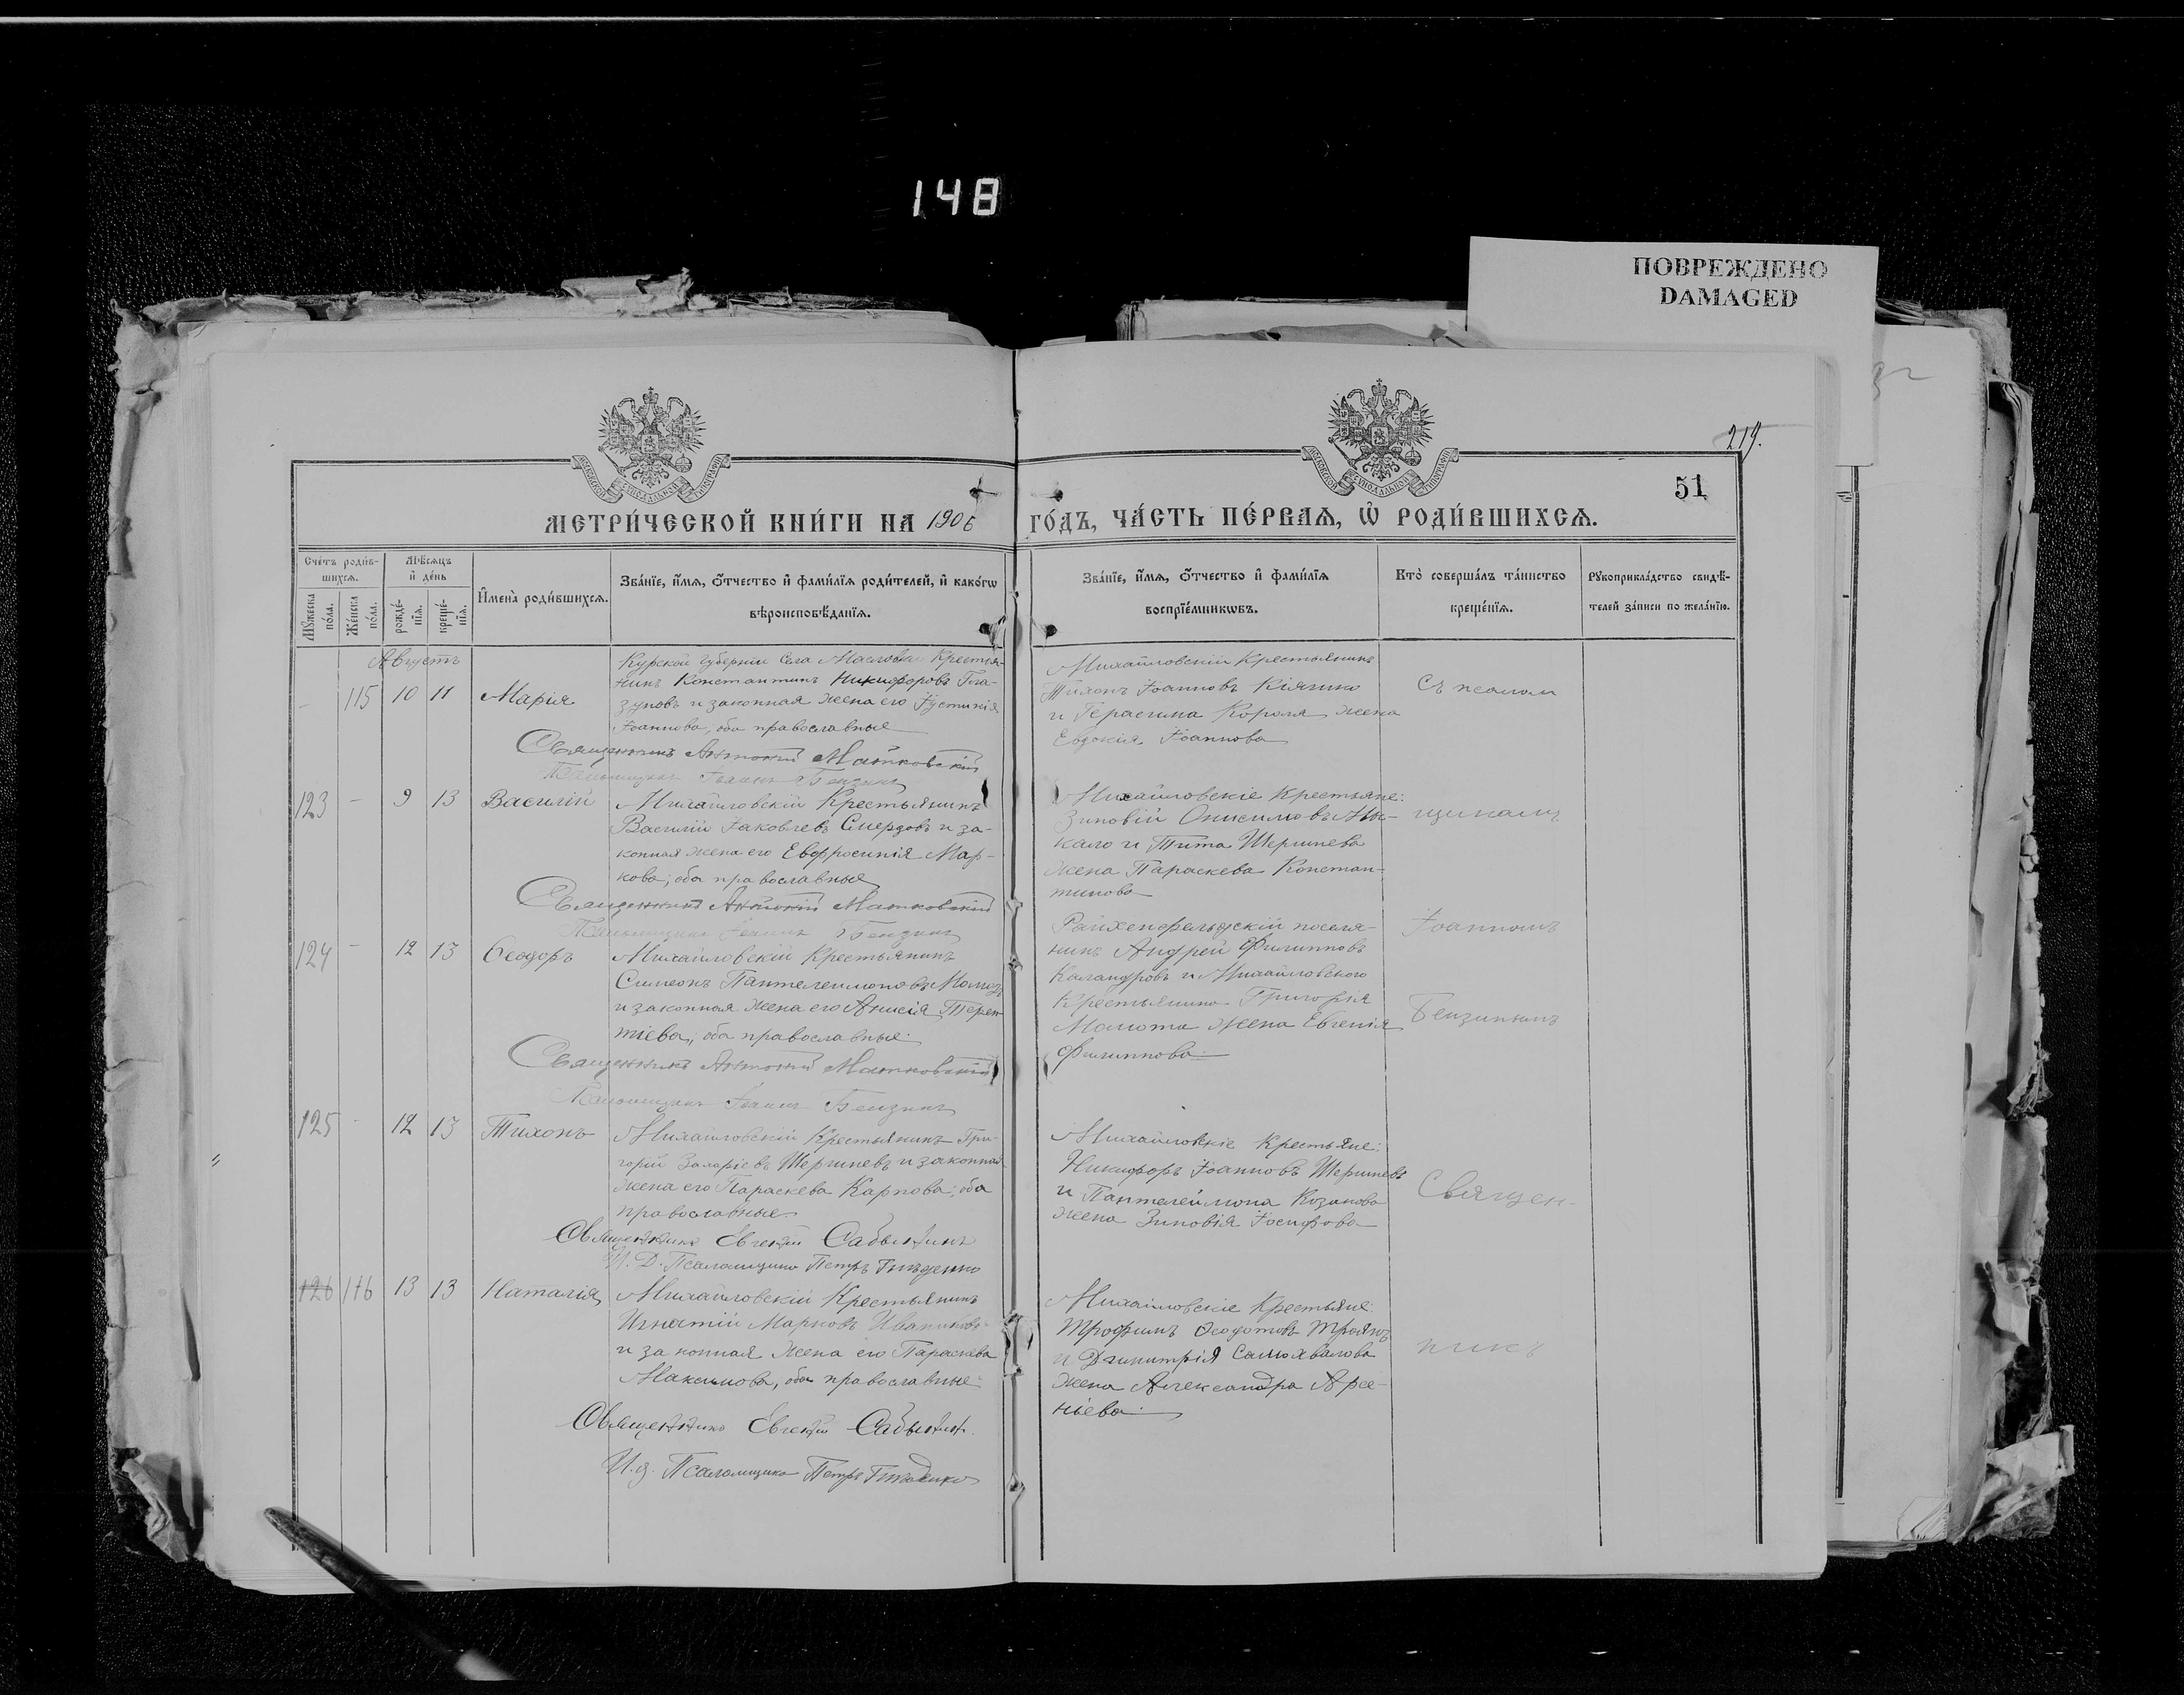 148
ПОВРЕЖДЕНО
DAMAGED
219.
51
МОСКОВСКОЙ СѴНОДАЛЬНОЙ ТИПОГРАФІИ
МОСКОВСКОЙ СѴНОДАЛЬНОЙ ТИПОГРАФІИ
МЕТРИ́ЧЕСКОЙ КНИ́ГИ НА 1906
ГО́ДЪ, ЧА́СТЬ ПЕ́РВАѦ, Ѽ РОДИ́ВШИХСѦ.
Сче́тъ роди́в-
шихсѧ.
Мѣ́сѧцъ
и҆ де́нь
Мꙋ́жеска
по́ла.
Же́нска
по́ла.
рожде́-
нїѧ.
креще́-
нїѧ.
И҆мена̀ роди́вшихсѧ.
Зва́нїе, и҆́мѧ, ѻ҆́тчество и҆ фами́лїѧ роди́телей, и҆ како́гѡ
вѣроисповѣ́данїѧ.
Зва́нїе, и҆́мѧ, ѻ҆́тчество и҆ фами́лїѧ
воспрїе́мникѡвъ.
Кто̀ соверша́лъ та́инство
креще́нїѧ.
Рꙋкоприкла́дство свидѣ́-
телей за́писи по жела́нїю.
Августъ
- 115 10 11 Марія
Курской губерніи села Масловки крестья-
нинъ Константинъ Никифоровъ Гла-
зуновъ и законная жена его Іустинія
Іоаннова, оба православные
Священникъ Антоній Матковскій
Псаломщикъ Іоаннъ Бензинъ
Михайловскій крестьянинъ
Тихонъ Іоанновъ Кіяшко
и Герасима Короля жена
Евдокія Іоаннова
Съ псалом
123 - 9 13 Василій
Михайловскій крестьянинъ
Василій Іаковлевъ Смердовъ и за-
конная жена его Евфросинія Мар-
кова; оба православные
Священникъ Антоній Матковскій
Псаломщикъ Іоаннъ Бензинъ
Михайловскіе крестьяне:
Зиновій Онисимовъ
и Тита Шершнева
жена Параскева Констан-
тинова
щикомъ
124 - 12 13 Ѳеодоръ
Михайловскій крестьянинъ
Симеонъ Пантелеимоновъ
и законная жена его Анисія Терен-
тіева; оба православные.
Священникъ Антоній Матковскій
Псаломщикъ Іоаннъ Бензинъ
Райхенфельдскій поселя-
нинъ Андрей Филипповъ
Каландровъ и Михайловскаго
крестьянина Григорія
жена Евгенія
Филиппова
Іоанномъ
Бензинымъ
125 - 12 13 Тихонъ
Михайловскій крестьянинъ Гри-
горій Захаріевъ Шершневъ и законная
жена его Параскева Карпова; оба
православные.
Священникъ Евгеній Савынинъ
И. Д. Псаломщика Петръ Гнѣденко
Михайловскіе крестьяне:
Никифоръ Іоанновъ Шершневъ
и Пантелеймона Козакова
жена Зиновія Іосифова
Священ-
126 116 13 13 Наталія
Михайловскій крестьянинъ
Игнатій Марковъ Иванковъ
и законная жена его Параскева
Максимова, оба православные.
Священникъ Евгеній Савынинъ
И. д. Псаломщика Петръ Гнѣденко
Михайловскіе крестьяне:
Трофимъ Ѳеодотовъ Троянъ
и Димитрія Самохвалова
жена Александра Арсе-
ніева.
никъ